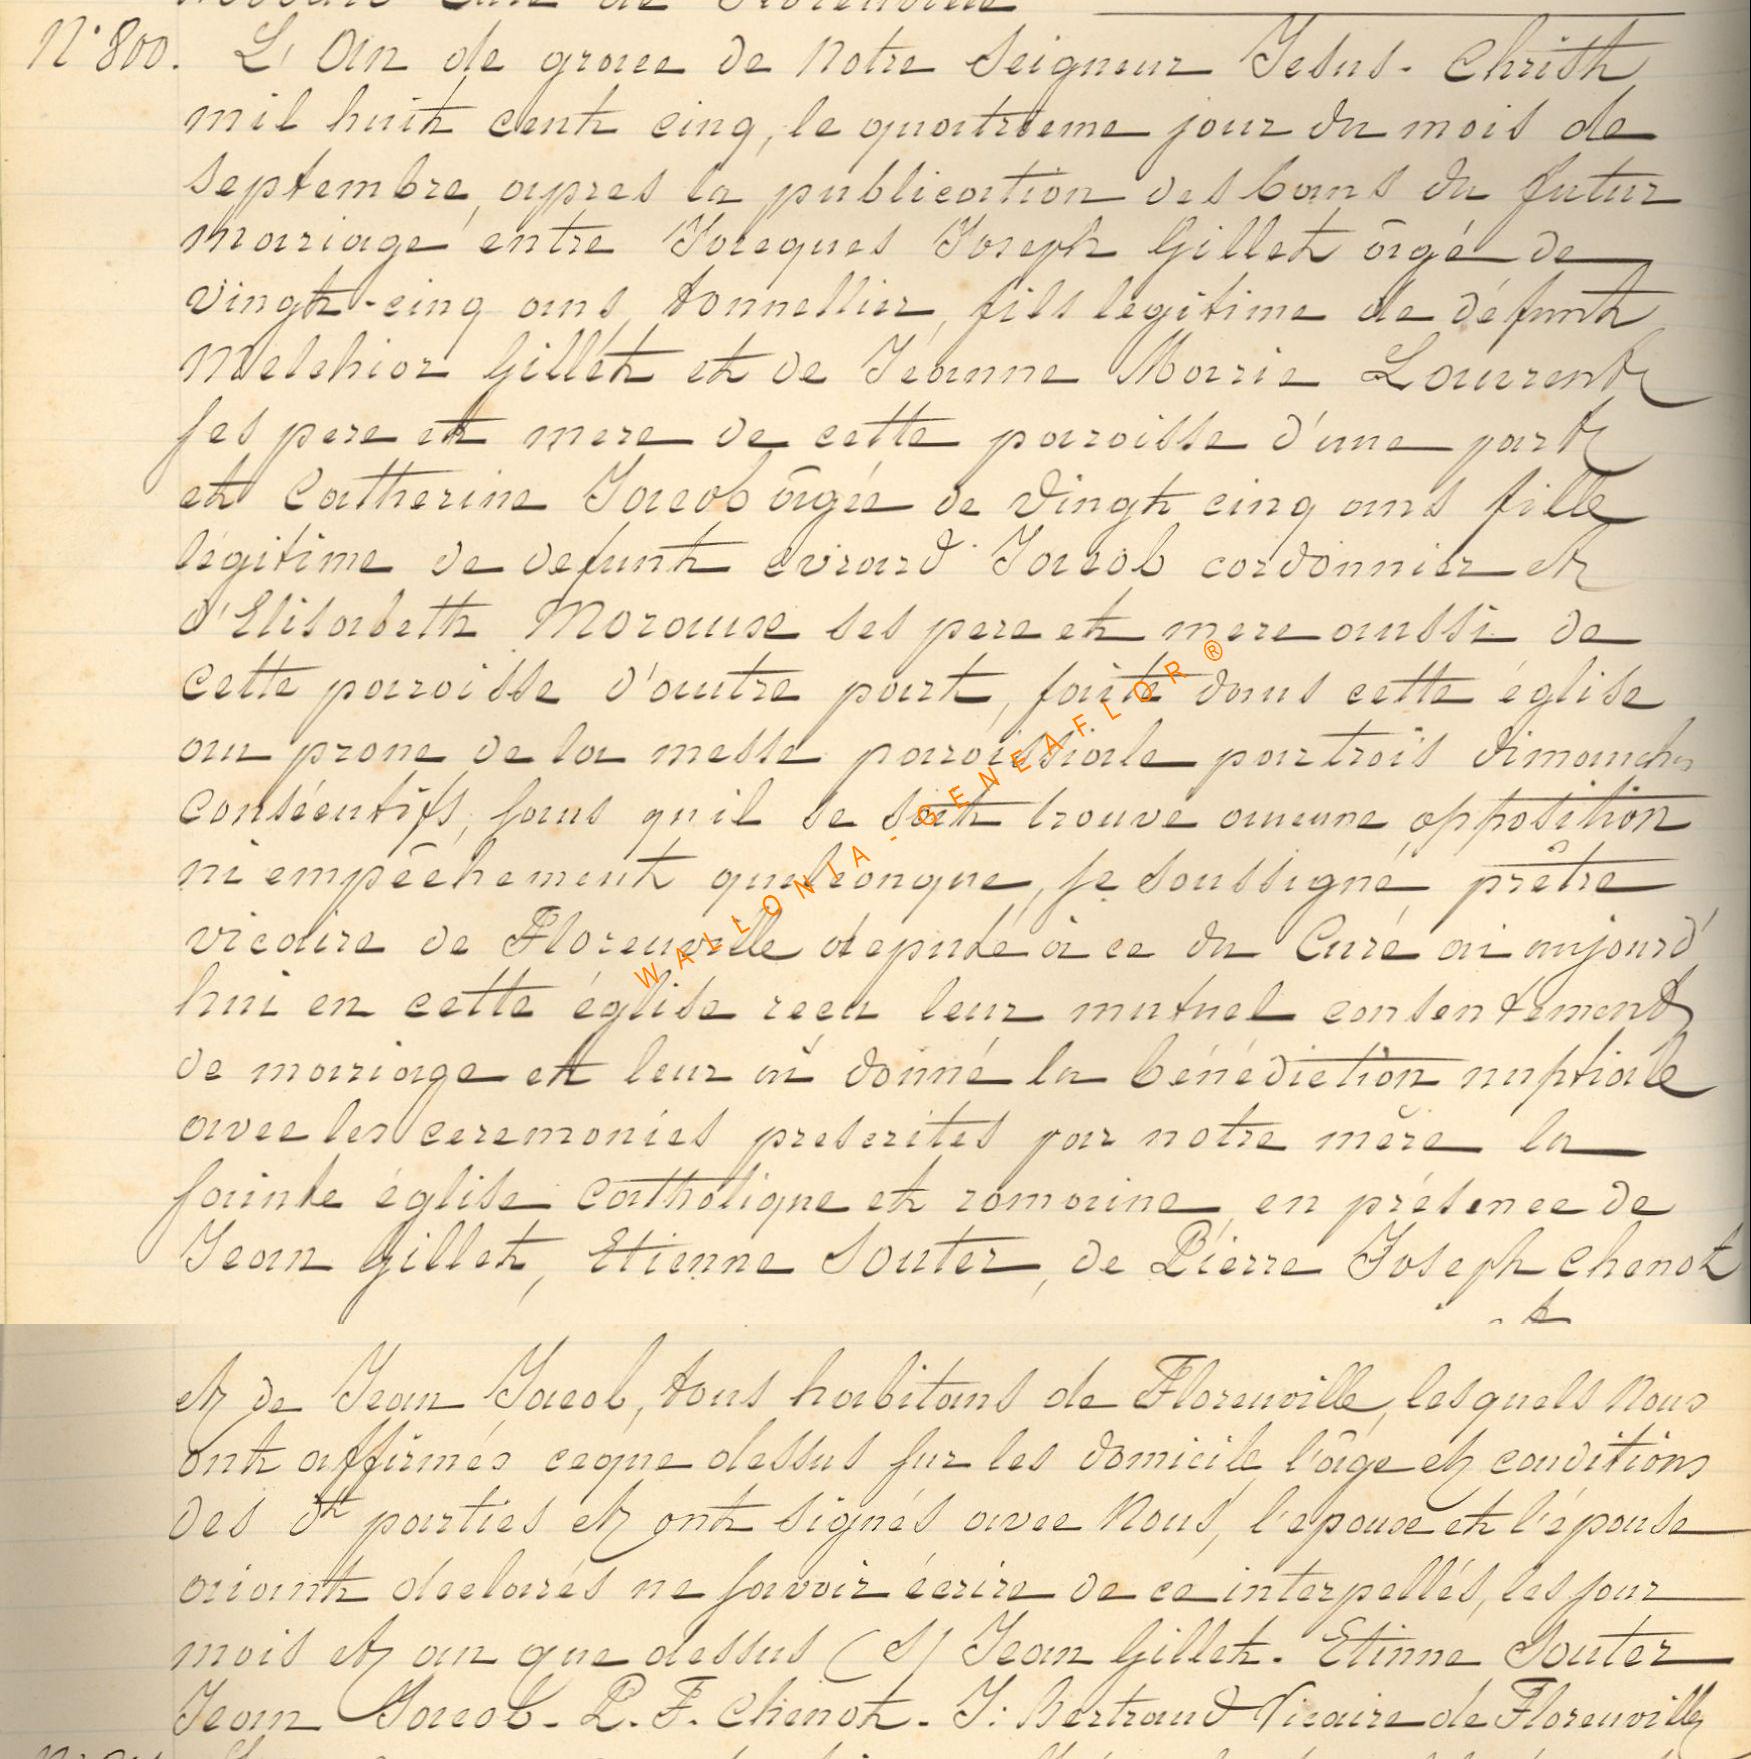 N° 800. L'An de grace de Notre Seigneur Jesus-Christ
mil huit cent cinq, le quatrieme jour du mois de
septembre, apres la publication des bans du futur
mariage entre Jacques Joseph Gillet âgé de
vingt-cinq ans, tonnellier, fils legitime de défunt
Melchior Gillet et de Jeanne Marie Laurent
ses pere et mere de cette paroisse d'une part
et Catherine Jacob âgée de vingt cinq ans fille
légitime de defunt evrard Jacob cordonnier et
d'Elisabeth Moraux ses pere et mere aussi de
cette paroisse d'autre part, faite dans cette église
au prone de la messe paroissiale par trois dimanches
consécutifs, sans qu'il se soit trouve aucune opposition
ni empêchement quelconque, je soussigné, prêtre
vicaire de Florenville député à ce du Curé ai aujourd'
hui en cette église recu leur mutuel consentement
de mariage et leur ai donné la bénédiction nuptiale
avec les ceremonies prescrites par notre mère la
sainte église catholique et romaine en présence de
Jean Gillet, Etienne Souter, de Pierre Joseph Chenot
et de Jean Jacob, tous habitans de Florenville, lesquels Nous
ont affirmés ceque dessus sur les domicile, l'âge et conditions
des dt parties et ont signés avec Nous, l'epoux et l'épouse
aiant declarés ne savoir écrire de ce interpellés, les jour
mois et an que dessus (S) Jean Gillet. Etinne Souter
Jean Jacob. P. J. Chenot. J: Bertrand Vicaire de Florenville
WALLONIA-GENEAFLOR ®